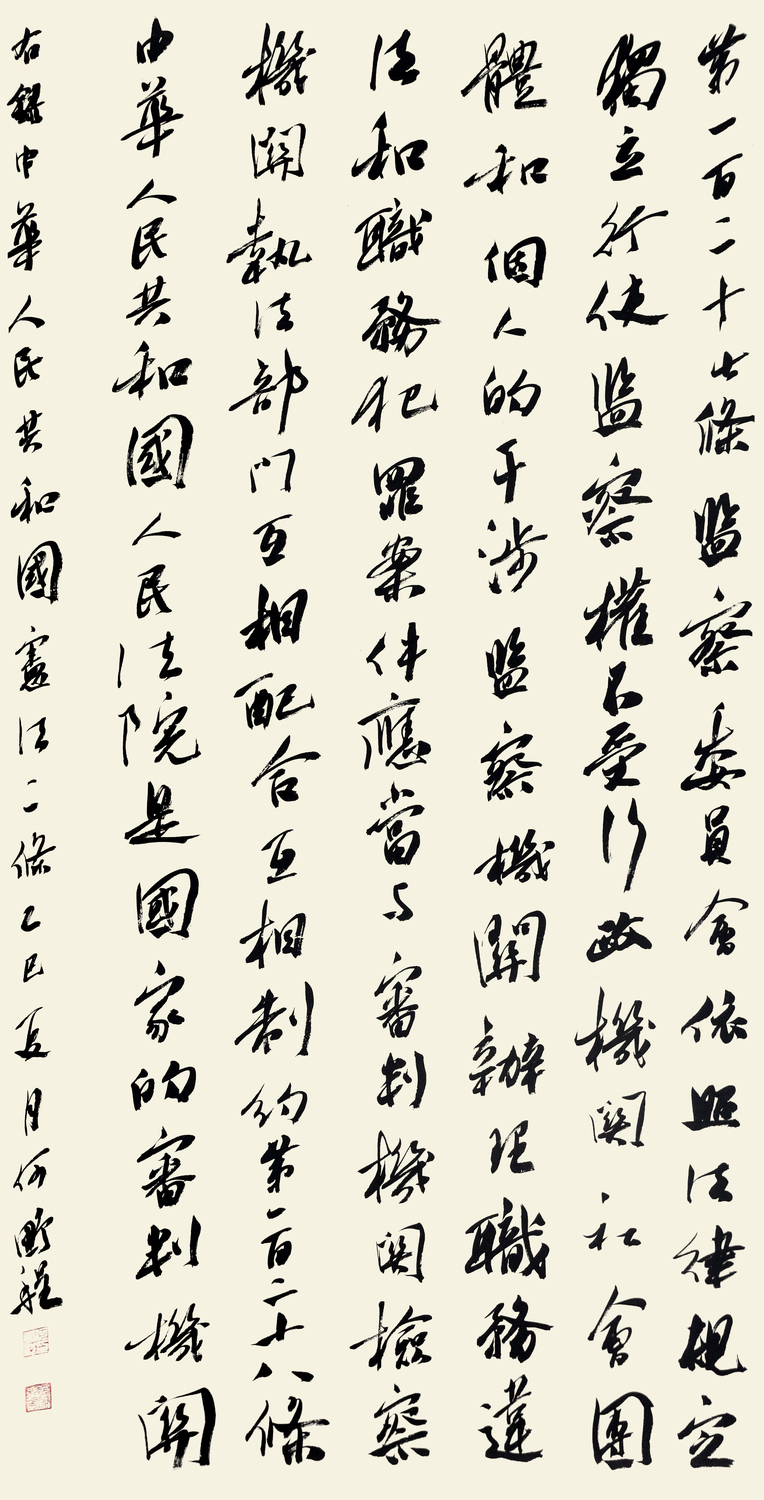 第一百二十七條监察委員會依照法律規定
獨立行使监察權不受行政機関社會團
體和個人的干涉监察機關辦理職務違
法和職務犯罪案件應當与審判機関檢察
機關執法部門互相配合互相制約第一百二十八條
中華人民共和國人民法院是國家的審判機關
右錄中華人民共和國憲法二條乙巳夏月何